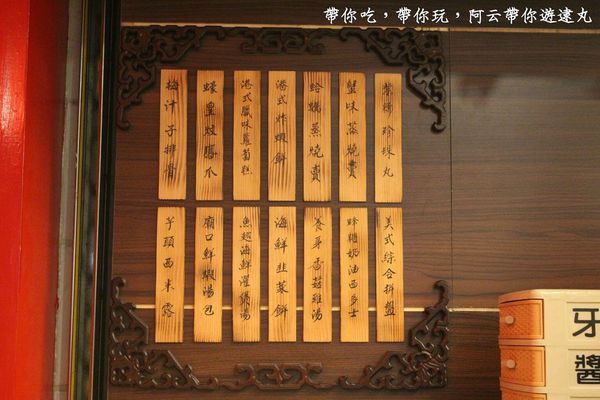 帶你吃，帶你玩，阿云帶你遊達丸
紫糯珍珠丸
蟹味蒸燒賣
蛤蠣蒸燒賣
港式炸蝦餅
港式臘味蘿蔔糕
蠔皇豉醬鳳爪
梅汁子排骨
美式綜合拼盤
蜂蜜奶油西多士
養身香菇雞湯
海鮮韭菜餅
魚翅海鮮灌湯湯
廟口鮮蝦湯包
芋頭西米露
牙
醬